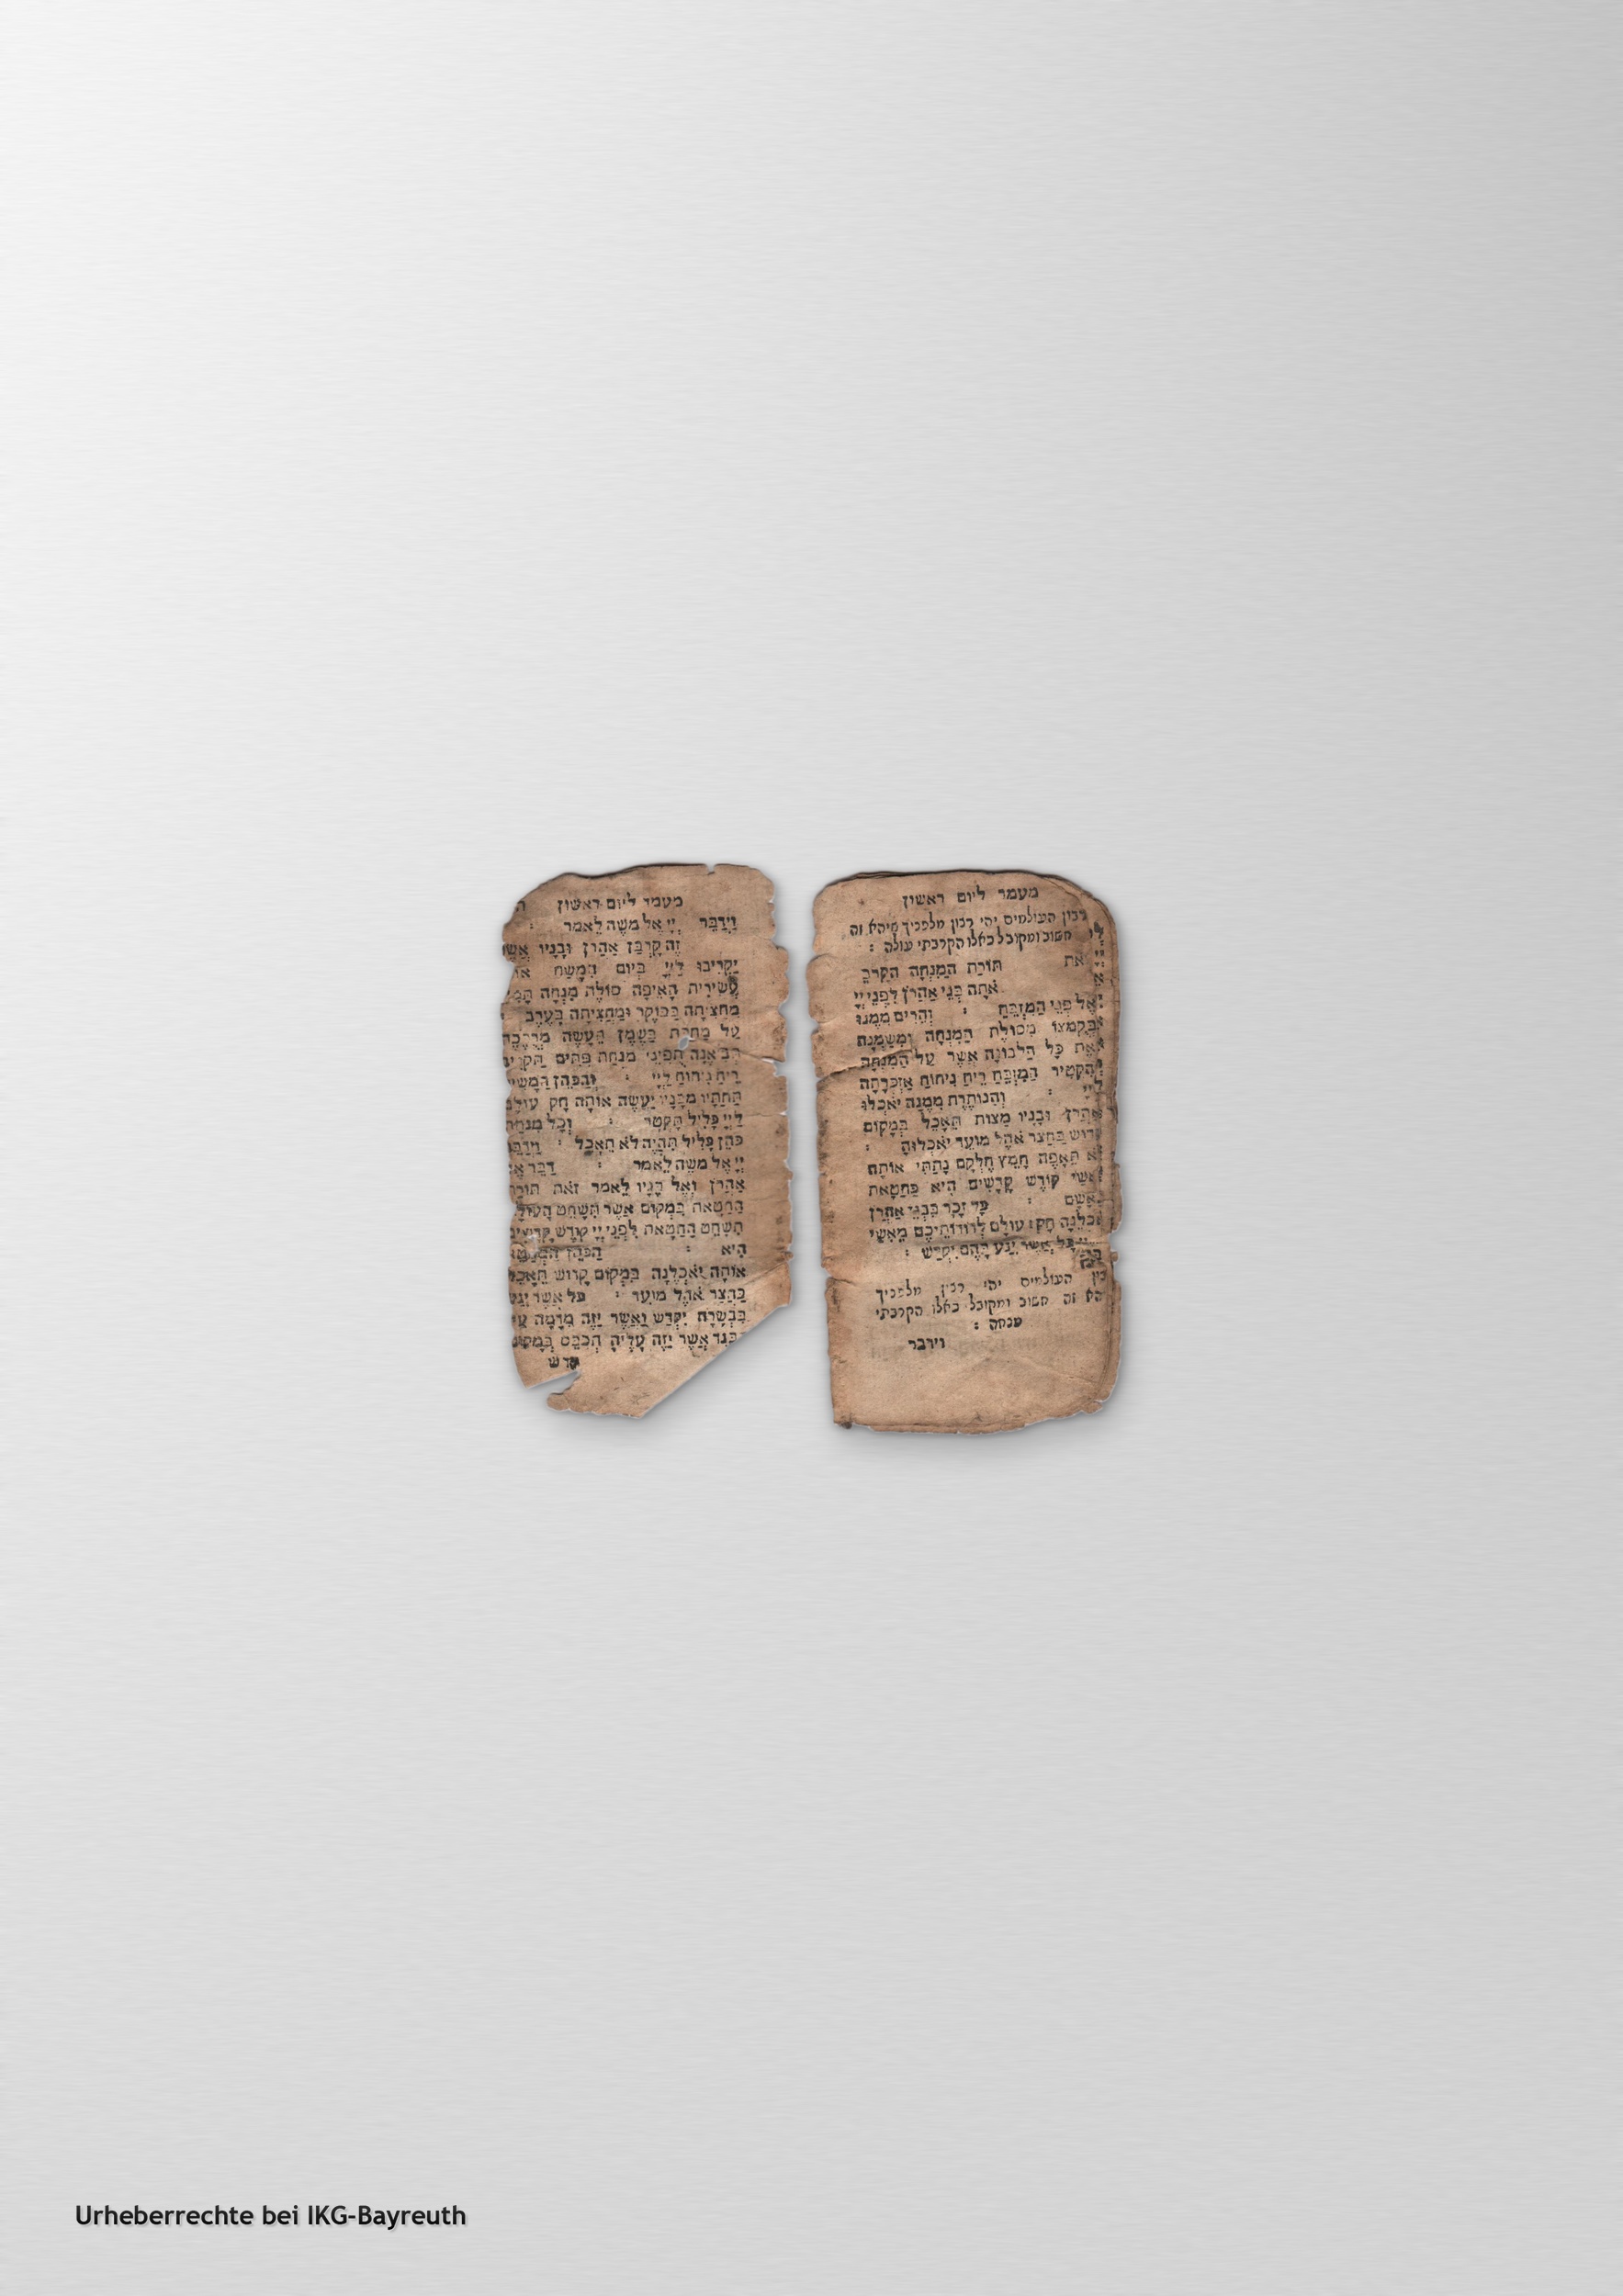 מעמד ליום ראשון
רבון העולמים יהי רצון מלפניך שיהא זה
חשוב ומקובל כאלו הקרבתי עולה :
תורת המנחה הקרב
אתה בני אהרן לפני יי
אל פני המזבח : והרים ממנו
בקמצו מסולת המנחה ומשמנה
ואת כל הלבונה אשר על המנחה
והקטיר המזבח ריח ניחוח אזכרתה
ליי : והנותרת ממנה יאכלו
אהרן ובניו מצות תאכל במקום
קדוש בחצר אהל מועד יאכלוה :
לא תאפה חמץ חלקם נתתי אותה
מאשי קודש קדשים היא כחטאת
וכאשם : כל זכר בבני אהרן
יאכלנה חק עולם לדורותיכם מאשי
יי כל אשר יגע בהם יקדש :
רבון העולמים יהי רצון מלפניך
שיהא זה חשוב ומקובל כאלו הקרבתי
מנחה :
וידבר
מעמד ליום ראשון
וידבר יי אל משה לאמר :
זה קרבן אהרן ובניו אשר
יקריבו ליי ביום המשח
עשירית האיפה סולת מנחה
מחציתה בבוקר ומחציתה בערב :
על מחבת בשמן תעשה מרבכת
תביאנה תפיני מנחת פתים
ריח ניחוח ליי : והכהן המשיח
תחתיו מבניו יעשה אותה חק עולם
ליי כליל תקטר : וכל מנחת
כהן כליל תהיה לא תאכל : וידבר
יי אל משה לאמר : דבר אל
אהרן ואל בניו לאמר זאת תורת
החטאת במקום אשר תשחט העולה
תשחט החטאת לפני יי קודש קדשים
היא : הכהן
אותה יאכלנה במקום קדוש תאכל
בחצר אהל מועד : כל אשר יגע
בבשרה יקדש ואשר יזה מדמה
הבגד אשר יזה עליה תכבס במקום
קדש
Urheberrechte bei IKG-Bayreuth